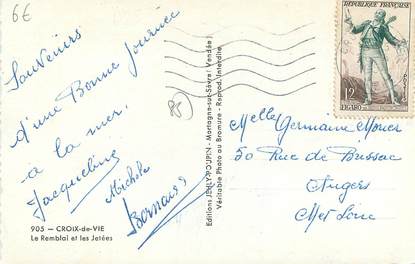 6€
Souvenirs
d'une Bonne journée
à la mer.
Jacqueline
Michèle
Bernard
905 - CROIX-de-VIE
Le Remblai et les Jetées
Editions JEHLY-POUPIN - Mortagne-sur-Sèvre (Vendée)
Véritable Photo au Bromure - Reprod. Interdite
RÉPUBLIQUE FRANÇAISE
12
FIGARO
Melle Germaine
50 Rue de Brissac
Angers
Met Loire